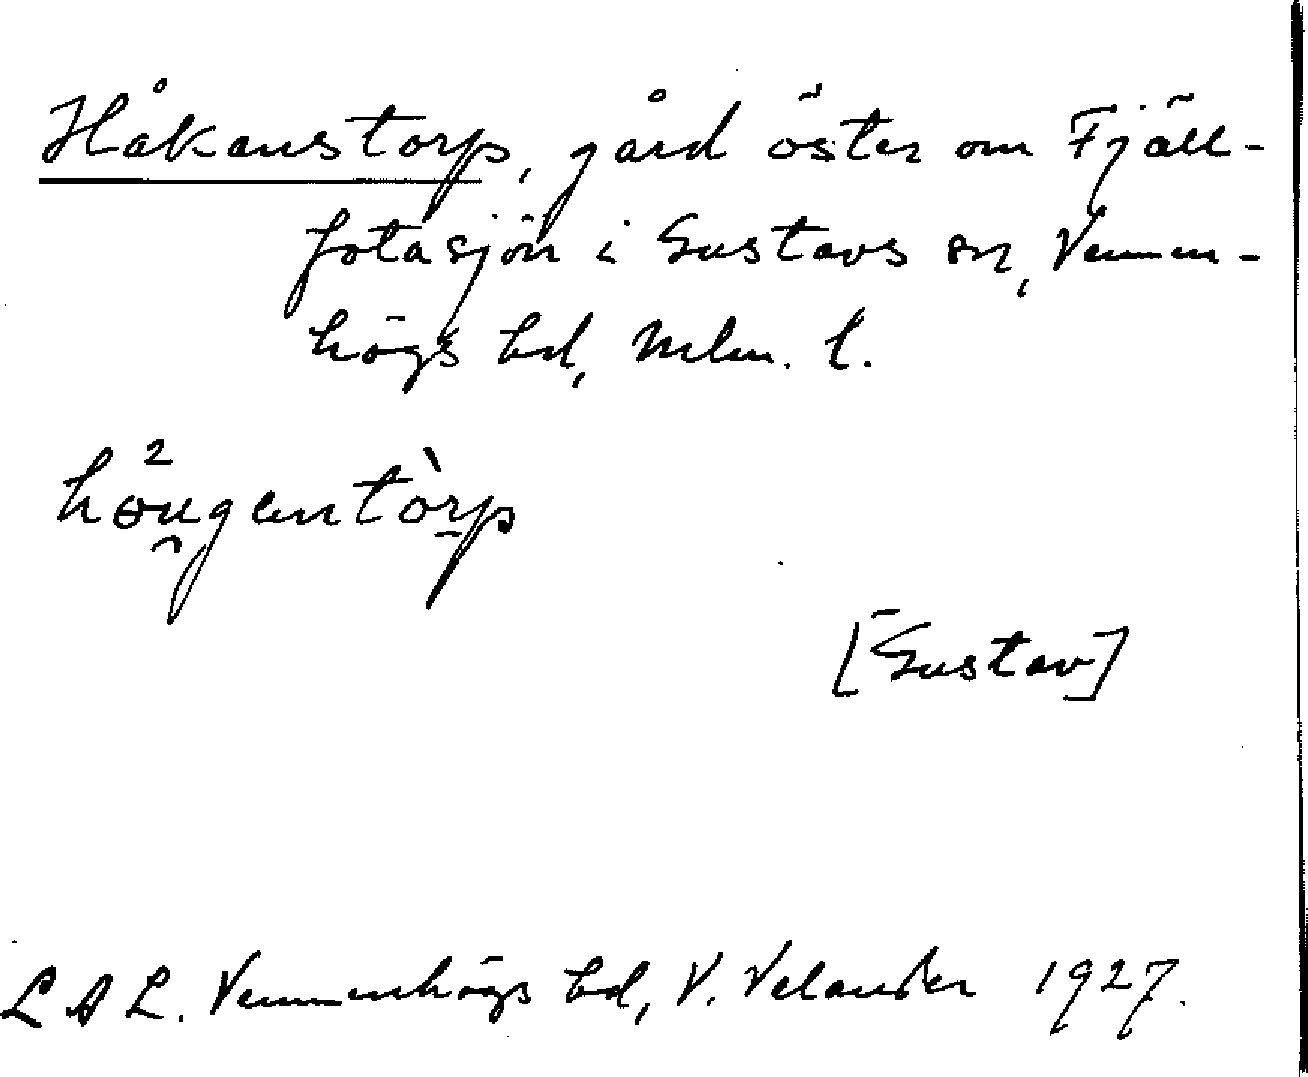 Håkanstorp, gård öster om Fjäll-
fotasjön i Gustavs sn, Vemmen-
högs hd, Mlm. l.
[Gustav]
LAL. Vemmenhögs hd, V. Velander 1927.